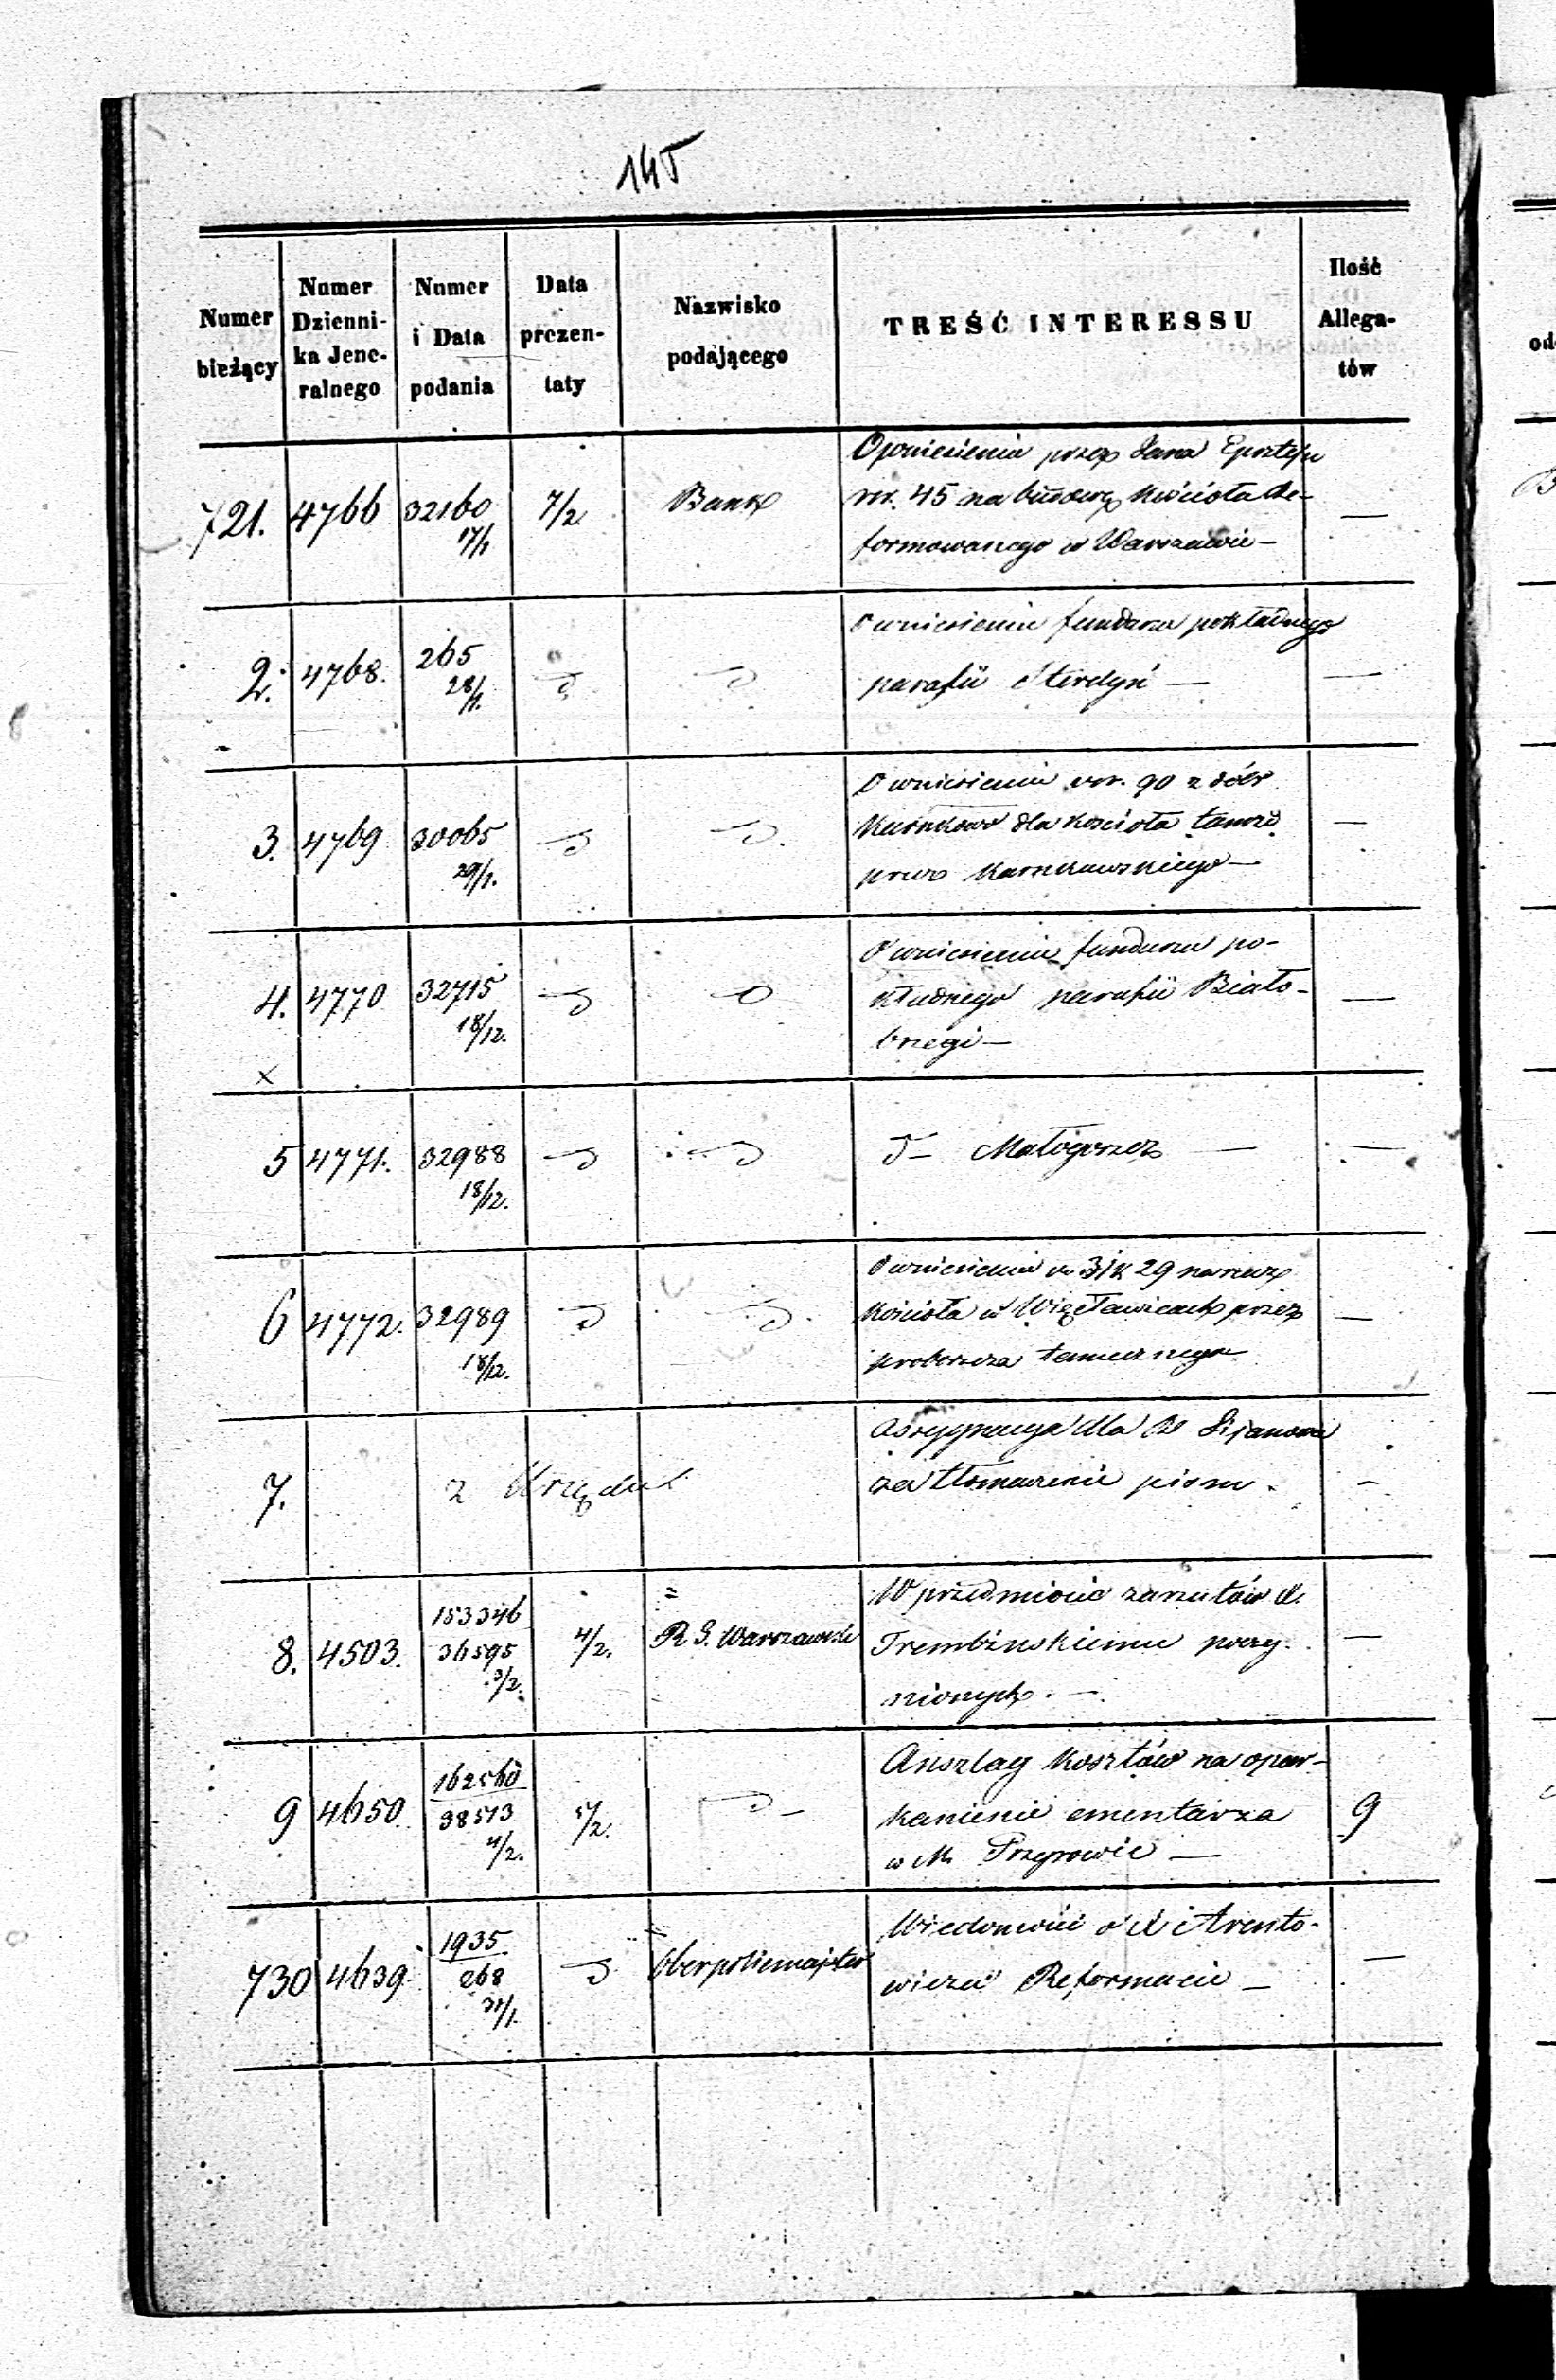 145
Numer bieżący
Numer Dzienni-ka Jene-ralnego
Numer i Data podania
Data prezen-taty
Nazwisko podającego
TREŚĆ INTERESSU
Ilość Allega-tów
721. 4766 32160 17/1 7/2 Bank
O poniesieniu przez Jana Epsztejn
rsr. 45 na budowę Kościoła Re-
formowanego w Warszawie — —
2. 4768. 265 28/1. d d
O wniesieniu funduszu pokładnego
parafii Sterdyń — —
3. 4769 30065 29/1. d d.
O wniesieniu rsr. 90 z dóbr
Karnkowo dla Kościoła tamże
przez Karnkowskiego — —
4. 4770 32715 18/12. d d
O wniesieniu funduszu po-
kładnego parafii Biało-
brzegi — —
x
5 4771. 32988 18/12. d d
d — Małogoszcz — —
6 4772. 32989 18/12. d d.
O wniesieniu rs. 31 k 29 na rzecz
Kościoła w Więcławicach przez
proboszcza tamecznego —
7. z Urzędu
Assygnacya dla
za tłomaczenie pism. —
8. 4503. 153346 36595 3/2. 4/2. R. G. Warszawski
W przedmiocie zarzutów X.
Trembińskiemu poczy-
nionych. — —
9 4650. 162560 38573 4/2. 5/2. d —
Anszlag kosztów na opar-
kanienie cmentarza
w M. Przyrowie — 9
730 4639. 1935 268 31/1. d Oberpolicmajster
Wiadomość o X
Reformacie — —